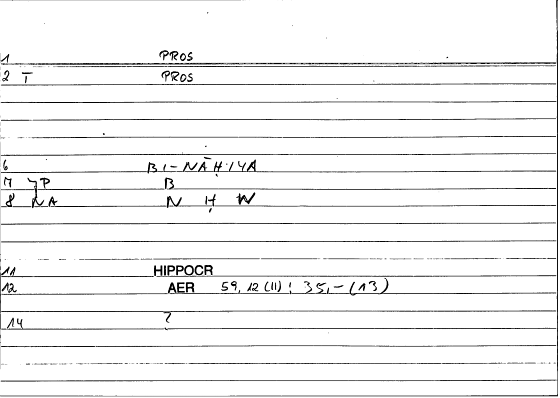 1 PROS
2 T PROS
6 BI-NĀḤIYA
7 B
8 NA N Ḥ W
11 HIPPOCR
12 AER 59, 12 (11) : 35,-(13)
14 ?